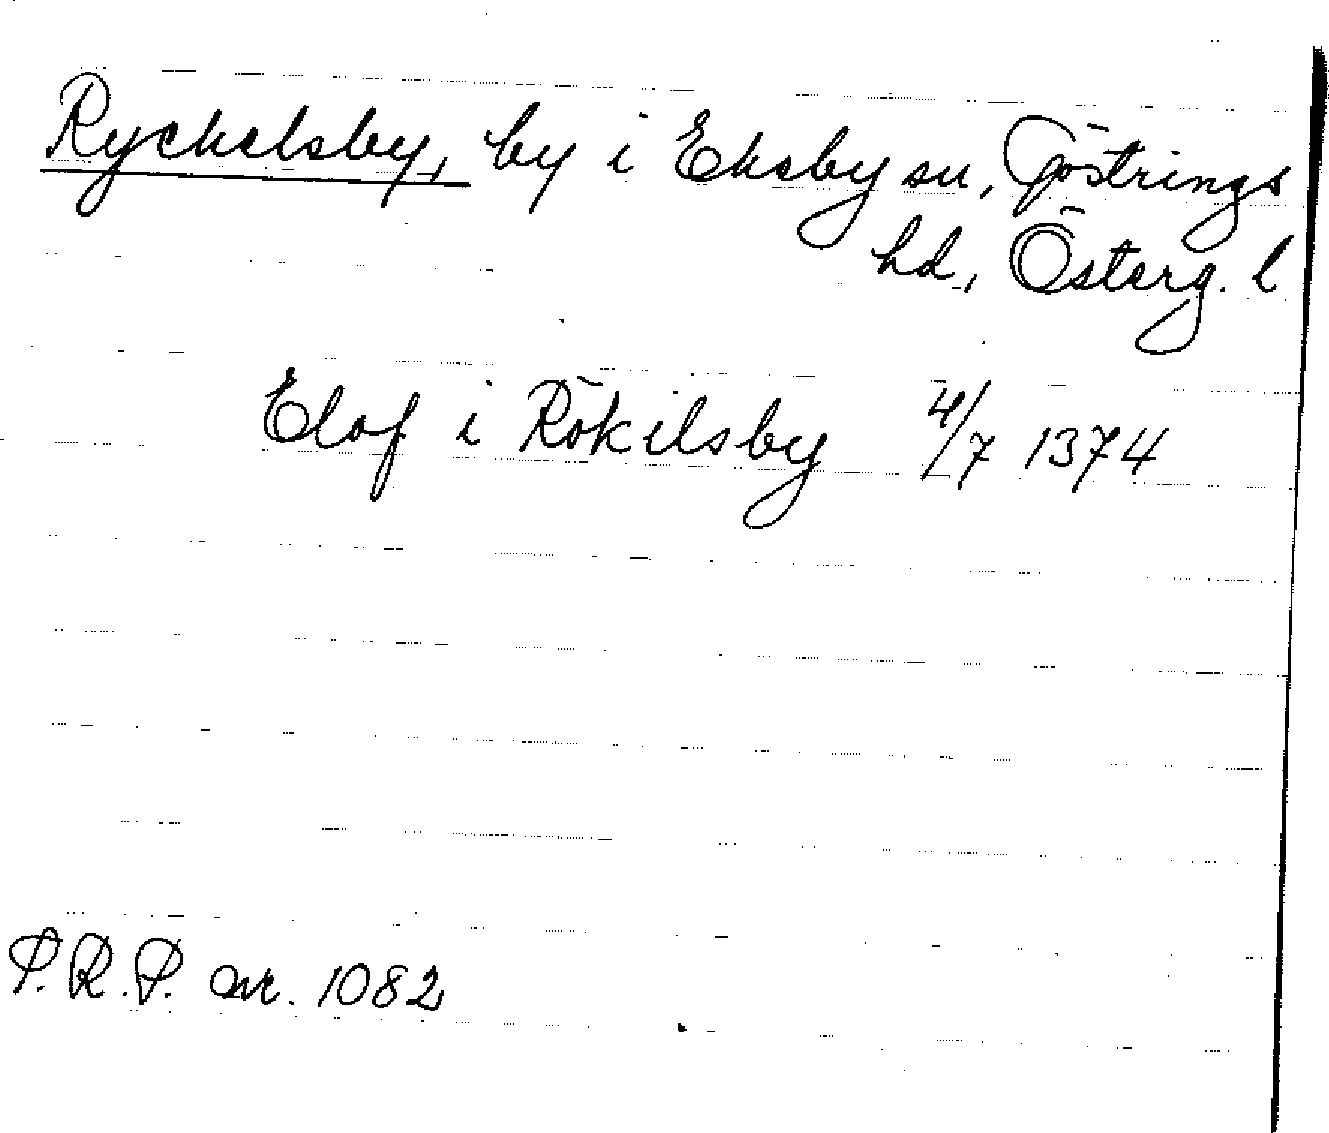 Ryckelsby, by i Eksby sn, Göstrings
hd, Österg. l
Elof i Rökilsby 4/7 1374
P.R.P. nr. 1082